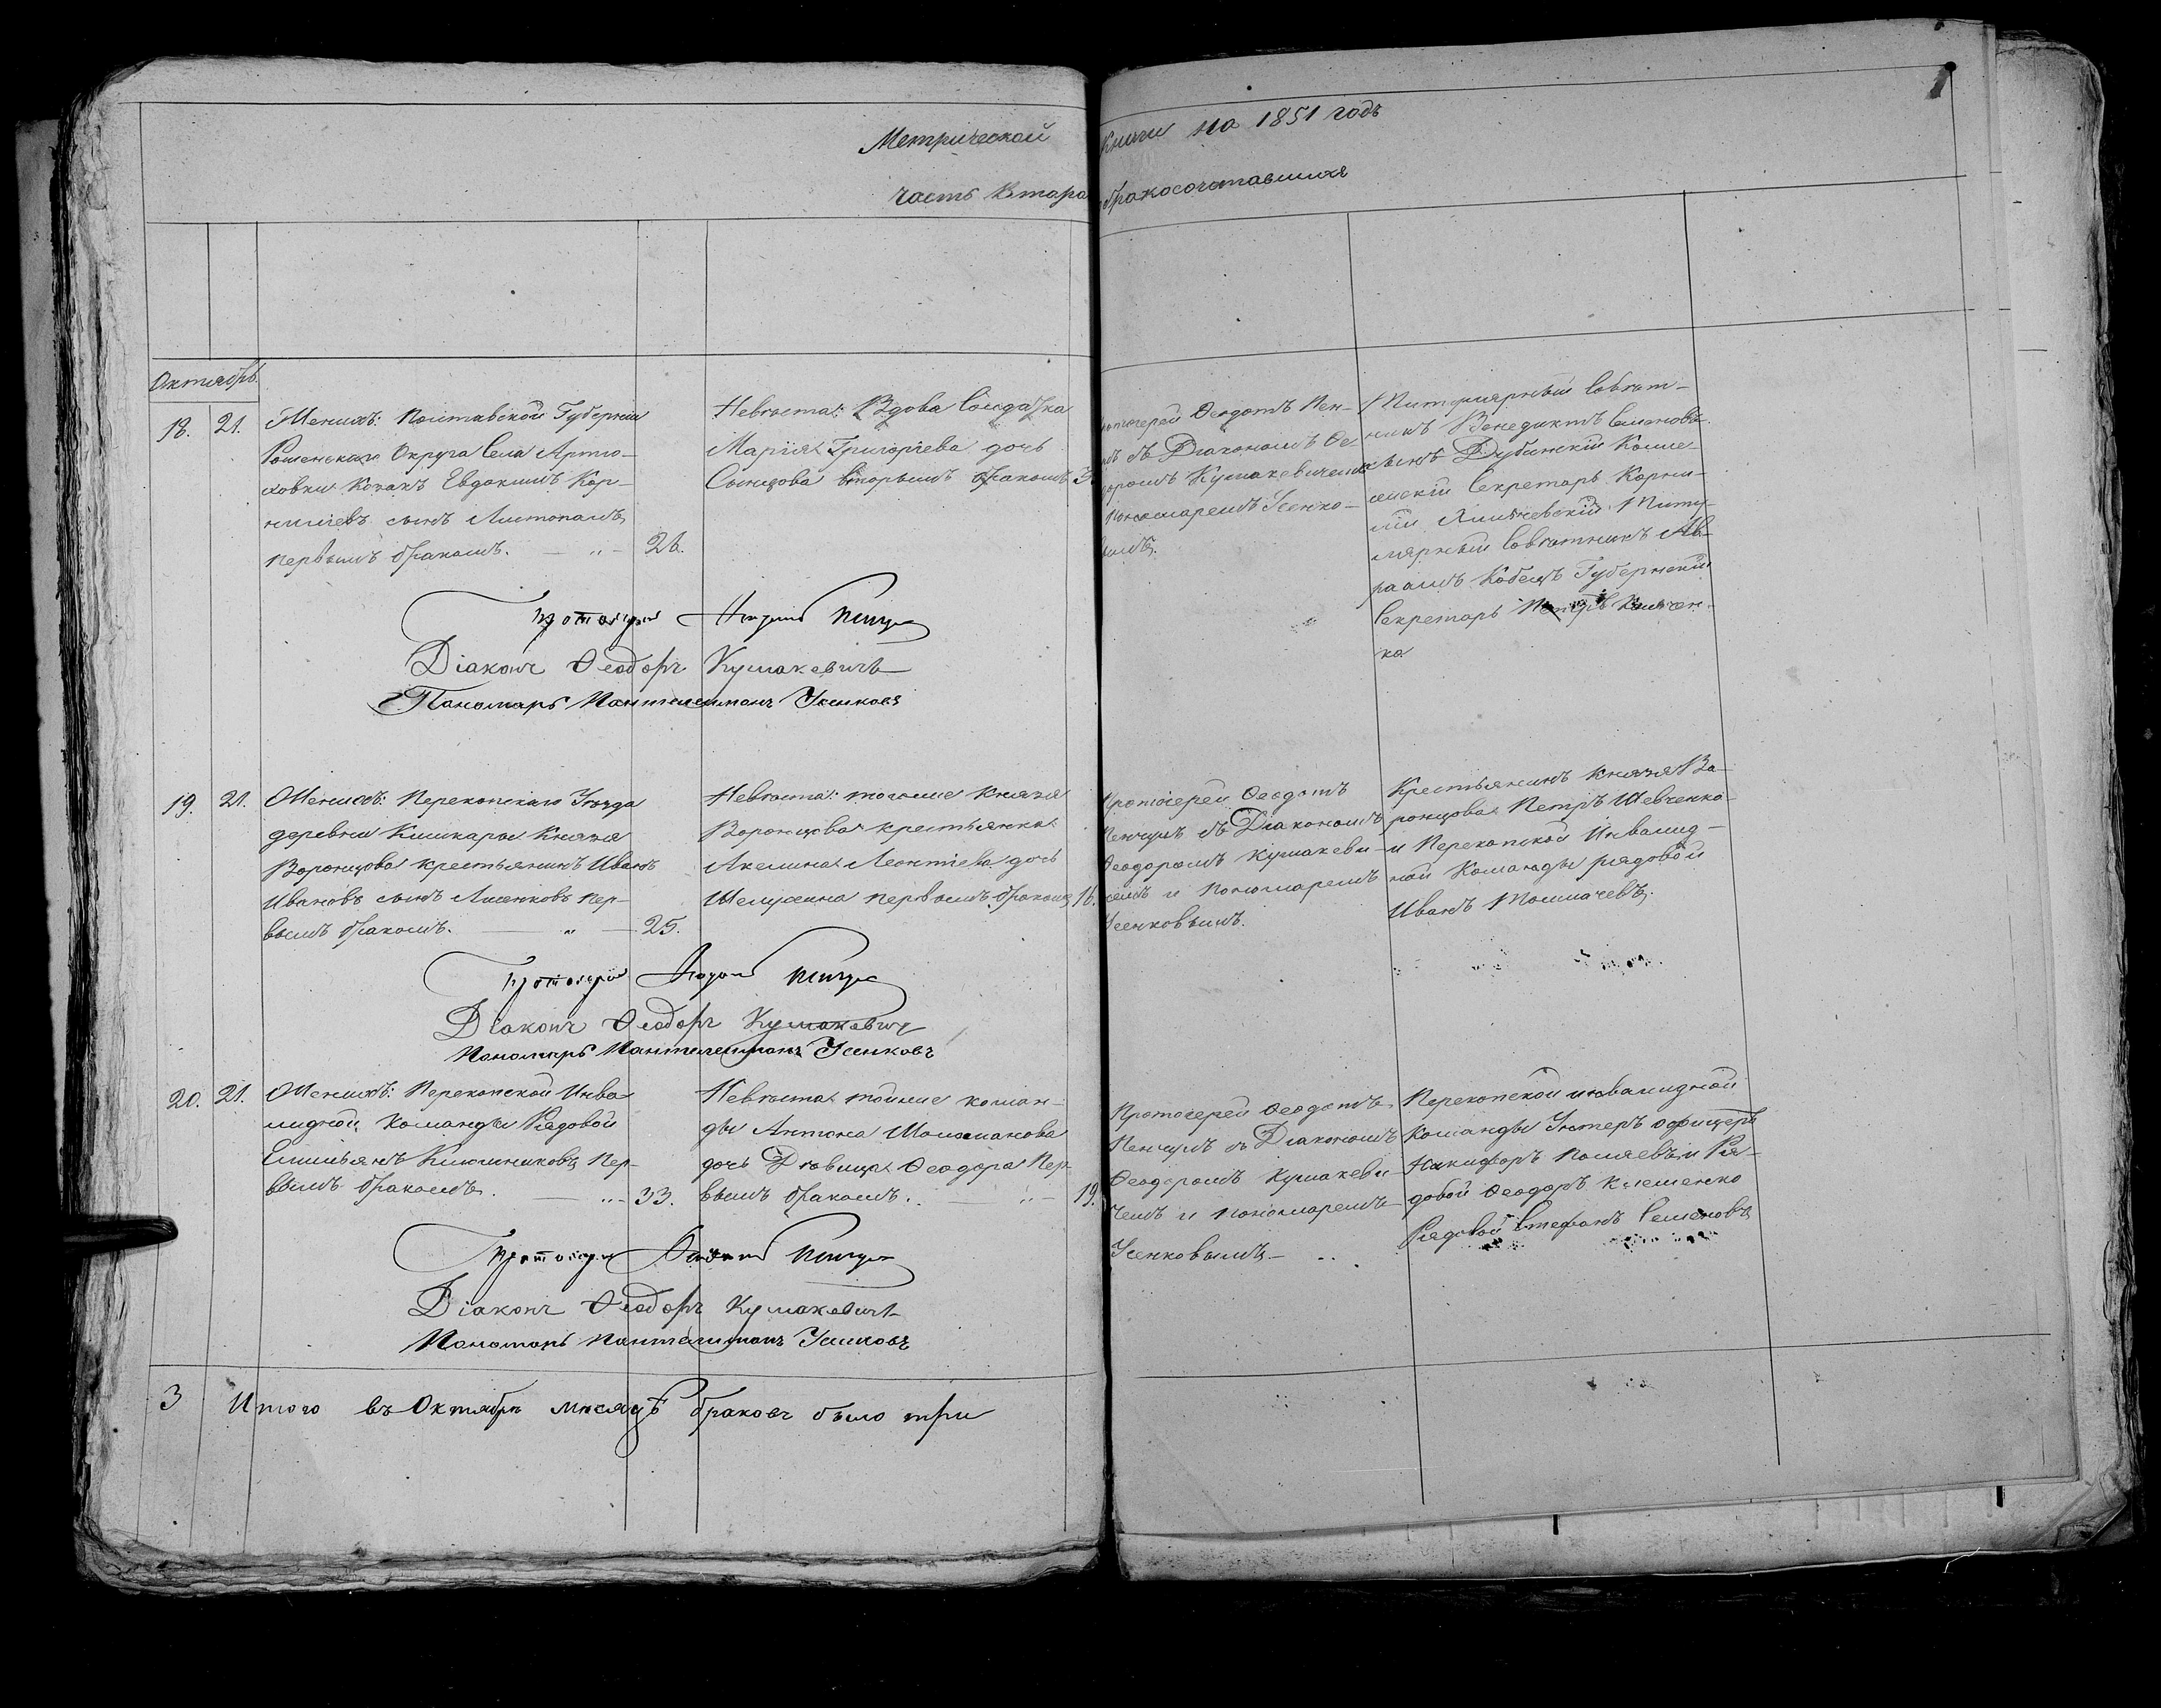 Метрической книги на 1851 годъ
часть втора бракосочетавшихся
Октябрь.
18. 21. Женихъ: Полтавской Губерніи
Роменскаго Округа Села Артю-
ховки Козакъ Евдокимъ Кор-
ниліевъ сынъ Листопадъ,
первымъ бракомъ. — „ — 26.
Невѣста: Вдова Солдатка
Марія Григоріева дочь
вторымъ бракомъ 3
Протоіерей Ѳеодотъ Пен-
съ Діакономъ Ѳе-
доромъ Кушакевичемъ
Пономаремъ Усенко-
вымъ.
Титулярный Совѣт-
никъ Венедиктъ Семеновъ
сынъ Дубинскій Колле-
жскій Секретарь Корни-
лій Титу-
лярный Совѣтникъ Ав-
раамъ Кобецъ Губернскій
Секретарь Петръ
ко
Протоіерей Ѳеодотъ Пенчул
Діаконъ Ѳеодоръ Кушакевичъ
Пономарь Пантелеимонъ Усенковъ
19. 21. Женихъ: Перекопскаго Уѣзда
деревни Кишкары Князя
Воронцова крестьянинъ Иванъ
Ивановъ сынъ Лисенковъ пер-
вымъ бракомъ. — „ — 25.
Невѣста: тогоже Князя
Воронцова крестьянка
Акелина Леонтіева дочь
первымъ бракомъ 16.
Протоіерей Ѳеодотъ
Пенчулъ съ Діакономъ
Ѳеодоромъ Кушакеви-
чемъ и Пономаремъ
Усенковымъ.
Крестьянинъ Князя Во-
ронцова Петръ Шевченко
и Перекопской Инвалид-
ной Команды рядовой
Иванъ Толмачевъ.
Протоіерей Ѳеодотъ Пенчул
Діаконъ Ѳеодоръ Кушакевичъ
Пономарь Пантелеимонъ Усенковъ
20. 21. Женихъ: Перекопской Инва-
лидной Команды Рядовой
Емильянъ Ключниковъ, Пер-
вымъ бракомъ. — „ — 33.
Невѣста тойже коман-
ды Антона Шолопанова
дочь Дѣвица Ѳеодора Пер-
вымъ бракомъ. — „ — 19.
Протоіерей Ѳеодотъ
Пенчулъ съ Діакономъ
Ѳеодоромъ Кушакеви-
чемъ и Пономаремъ
Усенковымъ —
Перекопской инвалидной
Команды Унтеръ офицеръ
Никифоръ Поляевъ и Ря-
довой Ѳеодоръ Клеменко
Рядовой Стефанъ Семеновъ
Протоіерей Ѳеодотъ Пенчул
Діаконъ Ѳеодоръ Кушакевичъ
Пономарь Пантелеимонъ Усенковъ
3 Итого въ Октябрѣ мѣсяцѣ браковъ было три